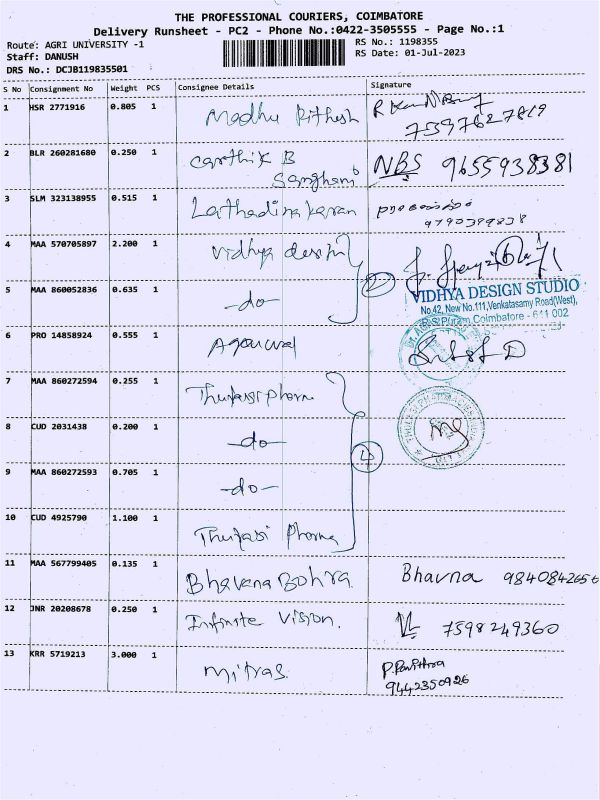 THE PROFESSIONAL COURIERS, COIMBATORE
Delivery Runsheet - PC2 - Phone No.:0422-3505555 - Page No.:1
Route: AGRI UNIVERSITY -1 RS No.: 1198355
Staff: DANUSH RS Date: 01-Jul-2023
DRS No.: DCJB119835501
S No Consignment No Weight PCS Consignee Details Signature
1 HSR 2771916 0.805 1 Madhu Rithesh
7397627819
2 BLR 260281680 0.250 1 Carthik B NBS 9655938381
Sanghani
3 SLM 323138955 0.515 1 Lathadinakaran
9790399838
4 MAA 570705897 2.200 1 Vidhya design
5 MAA 860052836 0.635 1 -do- 2
VIDHYA DESIGN STUDIO
No.42, New No.111, Venkatasamy Road(West),
R.S.Puram, Coimbatore - 641 002
6 PRO 14858924 0.555 1 Agarwal
7 MAA 860272594 0.255 1 Thulasi Pharma
8 CUD 2031438 0.200 1 -do- 4
9 MAA 860272593 0.705 1 -do-
10 CUD 4925790 1.100 1 Thulasi Pharma
11 MAA 567799405 0.135 1 Bhavana Bohra. Bhavna 9840842656
12 JNR 20208678 0.250 1 Infinite Vision. 7598249360
13 KRR 5719213 3.000 1 Mitras. P. Pavithra
9442350926